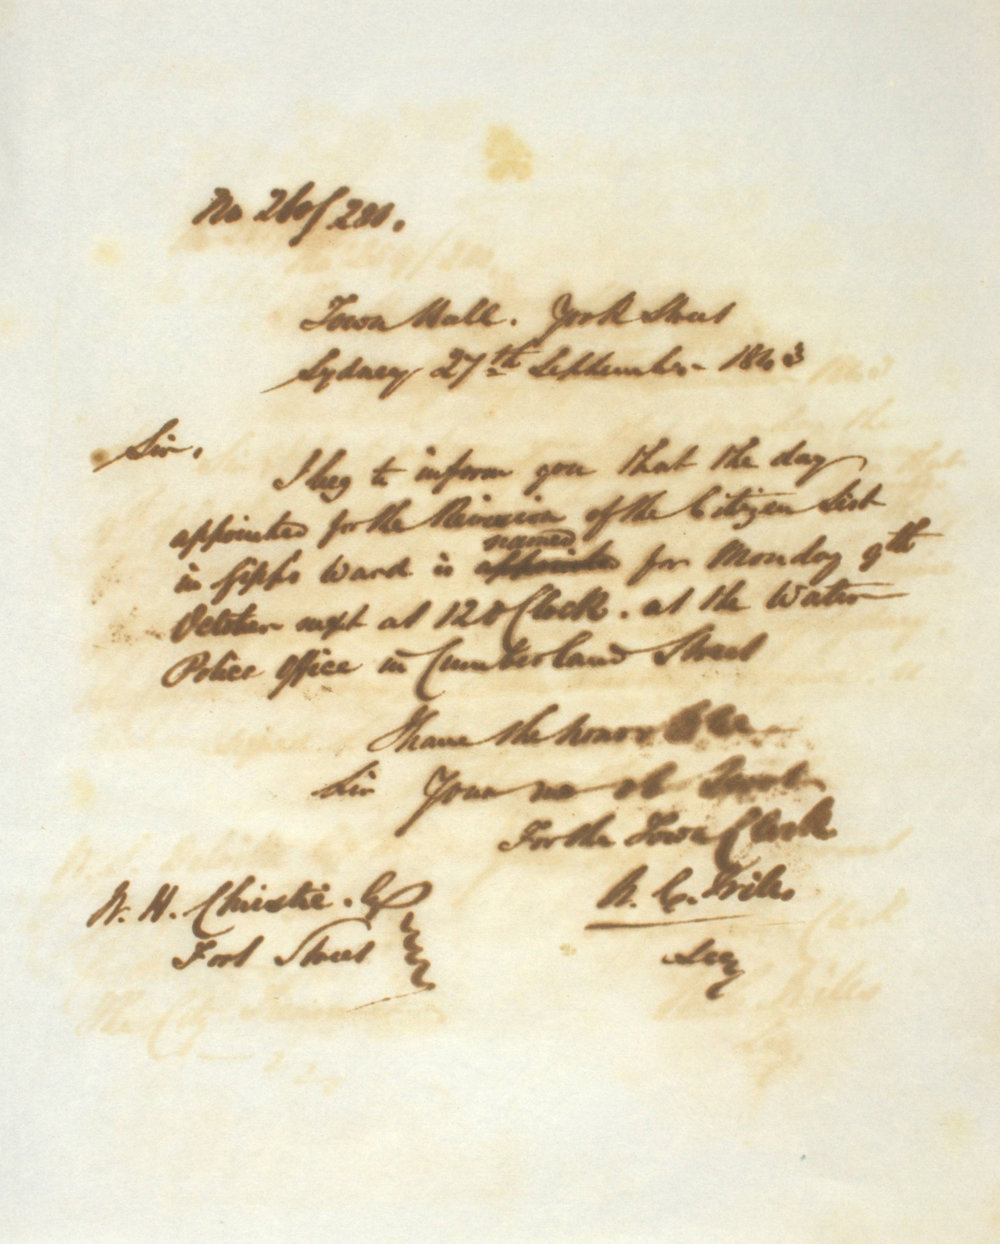 No 260/280.
Town Hall. York Street
Sydney 27th September 1843
Sir,
I beg to inform you that the day
appointed for the Revision of the Citizen List
named
in Gipps Ward is appointed for Monday 9th
October next at 12 o Clock. at the Water
Police Office in Cumberland Street
I have the honor to be
Sir Your mo ob Servt
For the Town Clerk
W. H. Christie. Esq
Fort Street